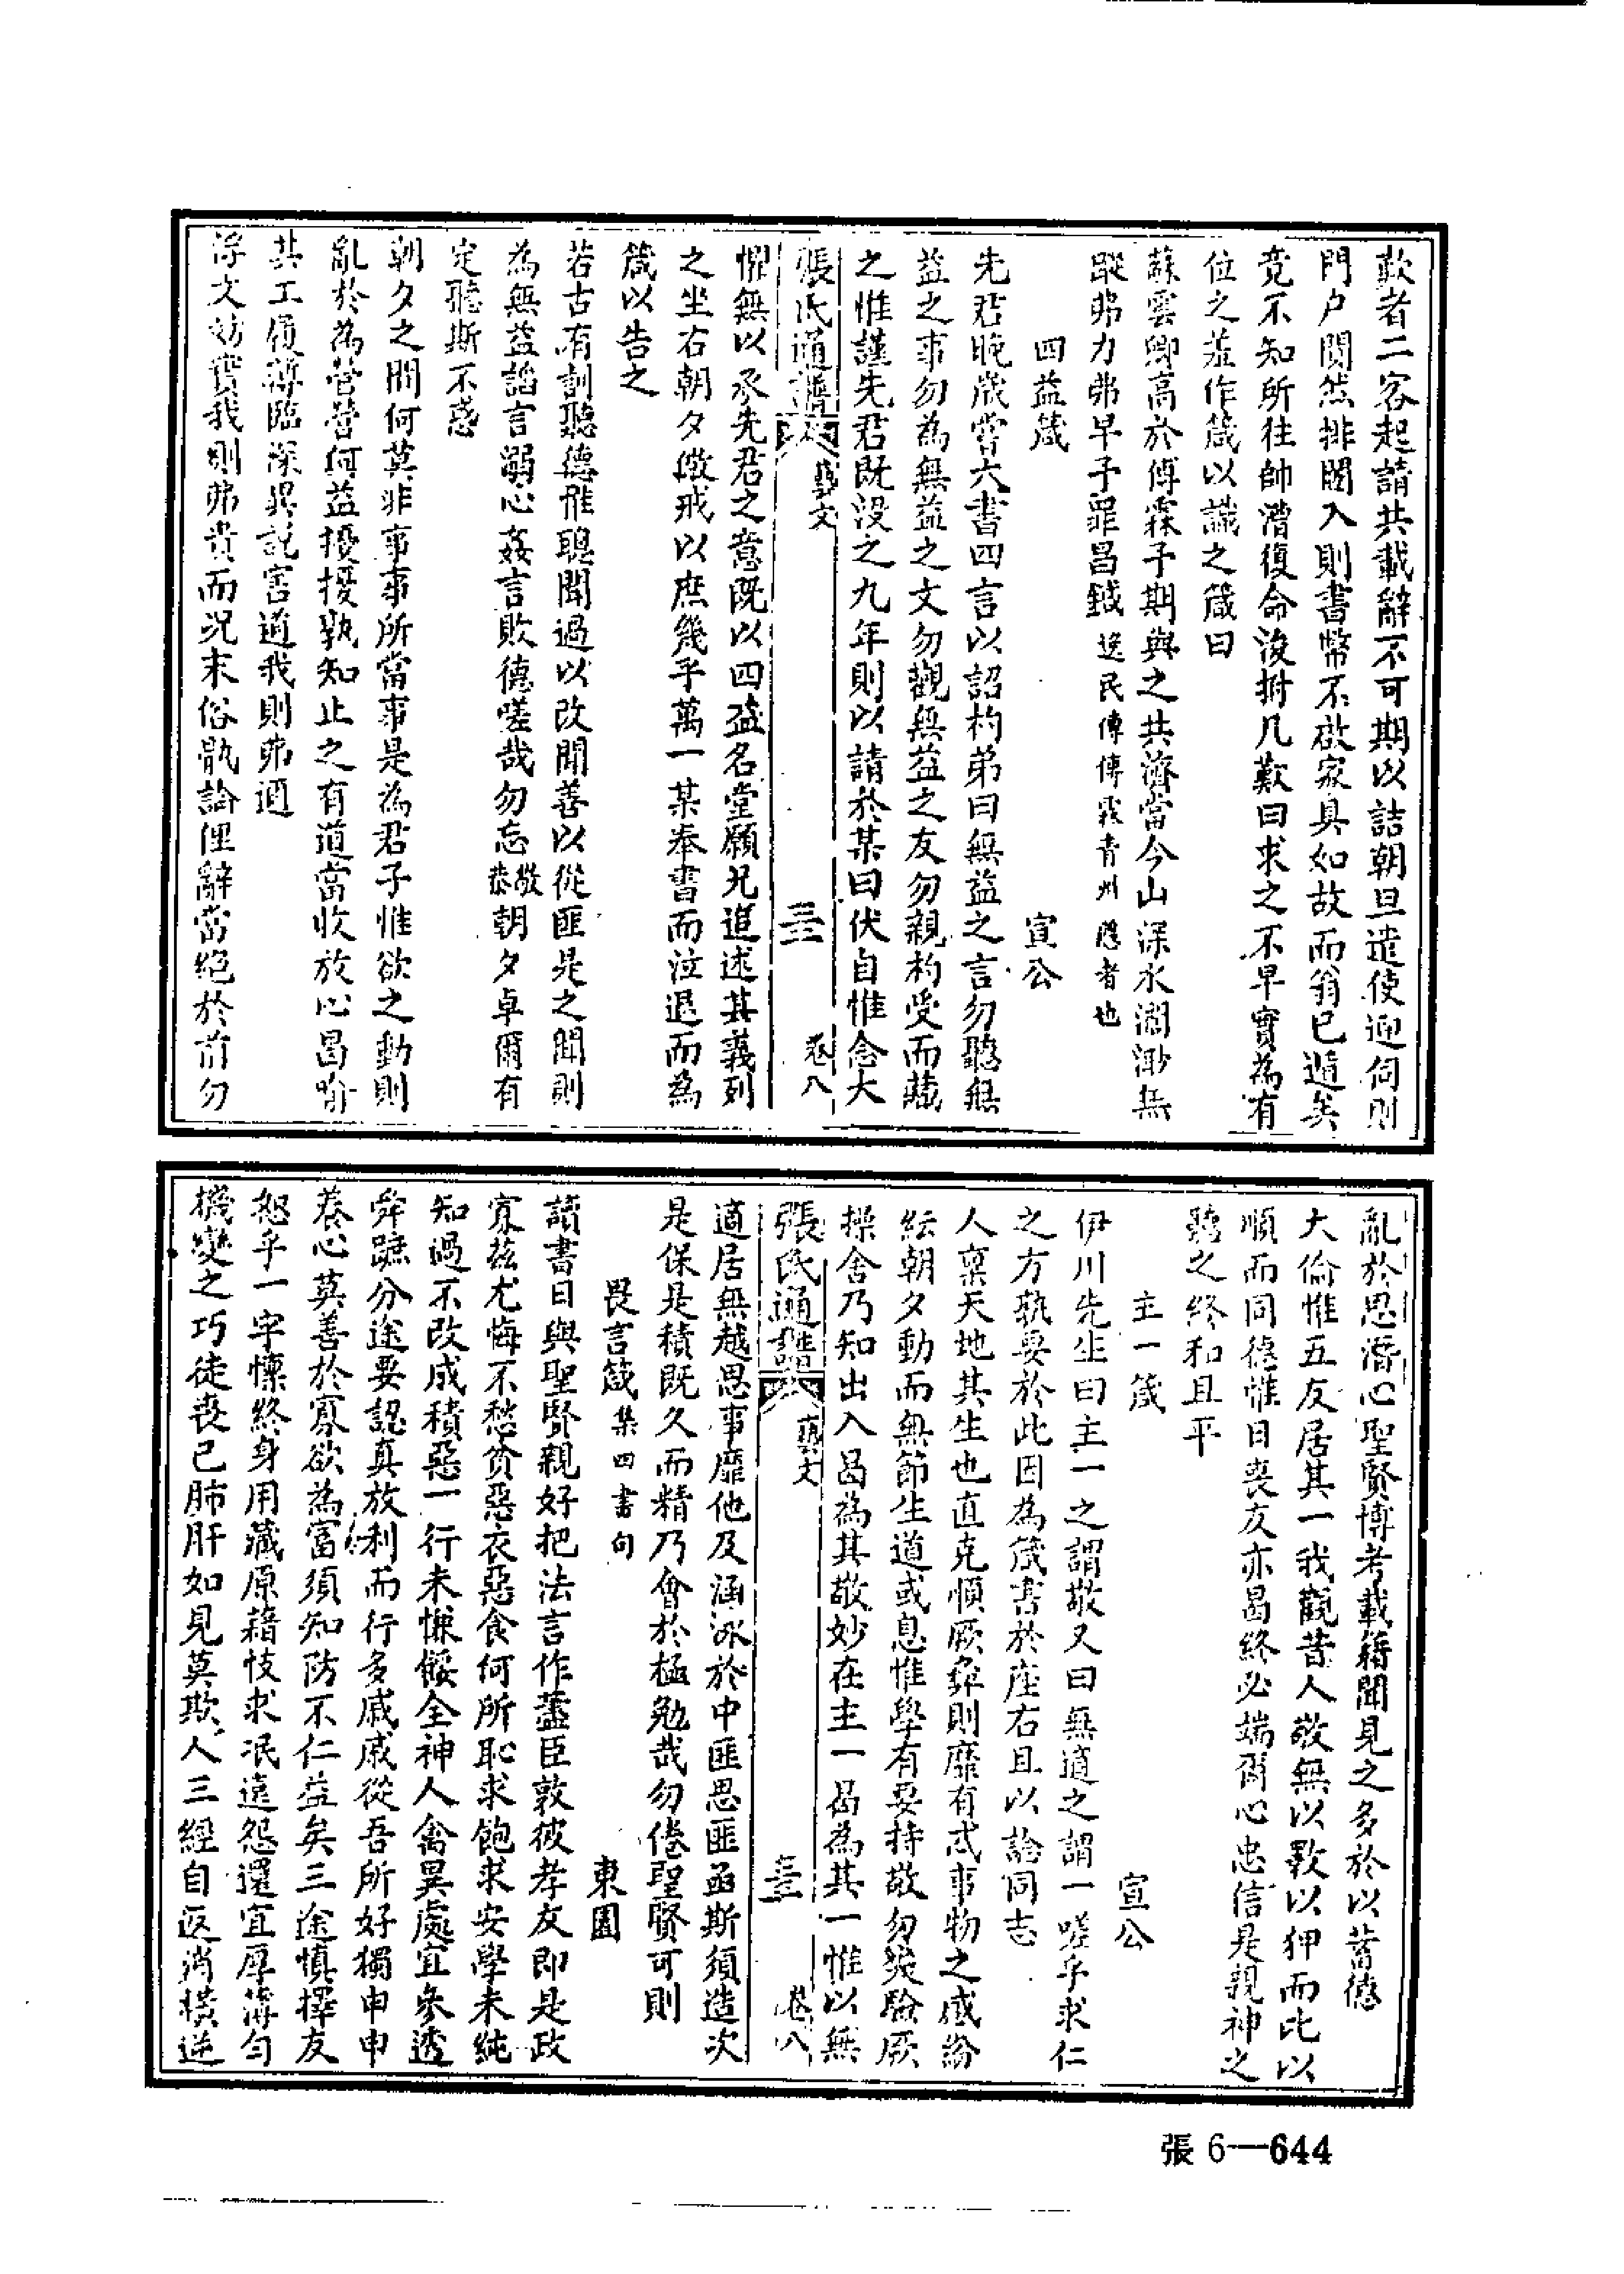 歎者二客起請共載辭不可期以詰朝旦遣使迎伺則
門户闃然排闥入則書幣不啟家具如故而翁已遁矣
竟不知所往帥漕復命浚拊几歎曰求之不早實為有
位之羞作箴以識之箴曰
蘇雲卿高於傅霖予期與之共濟當今山深水濶渺無
蹤弗力弗早予罪曷鍼逸民傳傅霖青州隱者也
四益箴 宣公
先君晚歲嘗六書四言以詔杓弟曰無益之言勿聽無
益之事勿為無益之文勿觀無益之友勿親杓受而藏
之惟謹先君既没之九年則以請於某曰伏自惟念大
張氏通譜 藝文 三三 卷八
懼無以承先君之意既以四益名堂願兄追述其義列
之坐右朝夕儆戒以庶幾乎萬一某奉書而泣退而為
箴以告之
若古有訓聽德惟聰聞過以改聞善以從匪是之聞則
為無益諂言溺心姦言敗德嗟哉勿忘敬恭朝夕卓爾有
定聽斯不惑
朝夕之間何莫非事事所當事是為君子惟欲之動則
亂於為營營何益擾擾孰知止之有道當收放心曷喻
其工履薄臨深異説害道我則弗迺
浮文妨實我則弗貴而况末俗骫論俚辭當絶於前勿
亂於思潛心聖賢博考載籍聞見之多於以蓄德
大倫惟五友居其一我觀昔人敬無以斁以狎而比以
順而同德惟日喪友亦曷終必端爾心忠信是親神之
聽之終和且平
主一箴 宣公
伊川先生曰主一之謂敬又曰無適之謂一嗟乎求仁
之方孰要於此因為箴書於座右且以諗同志
人稟天地其生也直克順厥彝則靡有忒事物之感紛
紜朝夕動而無節生道或息惟學有要持敬勿失驗厥
操舍乃知出入曷為其敬妙在主一曷為其一惟以無
張氏通譜 藝文 三三 卷八
適居無越思事靡他及涵泳於中匪思匪亟斯須造次
是保是積既久而精乃會於極勉哉勿倦聖賢可則
畏言箴集四書句 東園
讀書日與聖賢親好把法言作藎臣敦彼孝友即是政
寡兹尤悔不愁貧惡衣惡食何所恥求飽求安學未純
知過不改成積惡一行未慊餒全神人禽異處宜參透
舜蹠分途要認真放利而行多戚戚從吾所好獨申申
養心莫善於寡欲為富須知防不仁益矣三途慎擇友
恕乎一字懍終身用藏原藉忮求泯遠怨還宜厚薄勻
機變之巧徒喪已肺肝如見莫欺人三經自返消横逆
張6—644